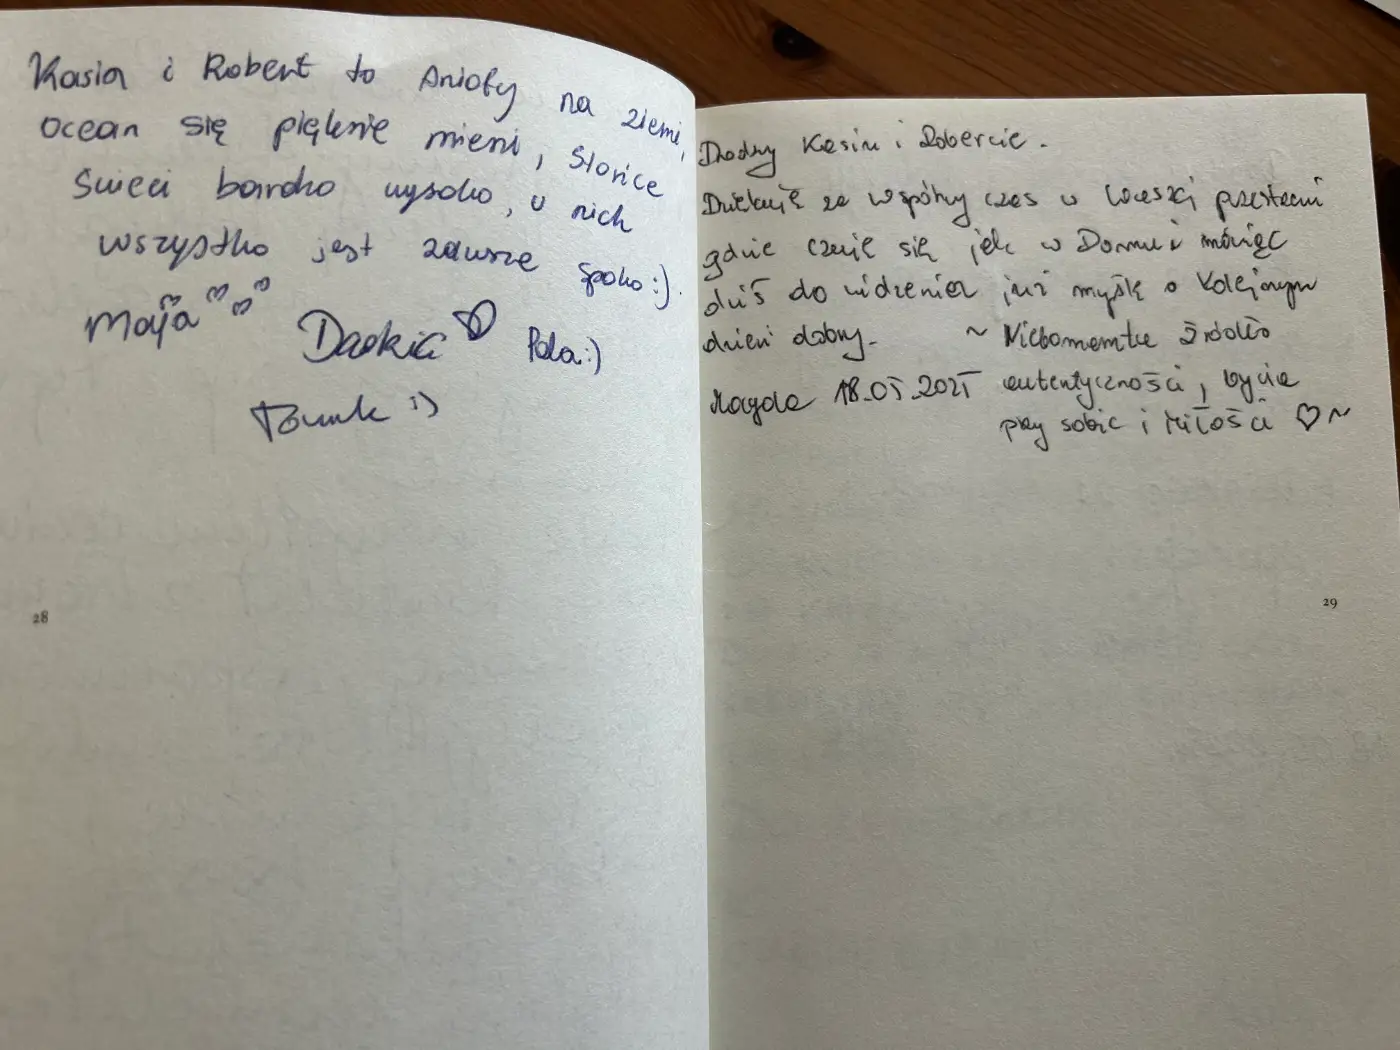 Kasia i Robert to Anioły na ziemi,
ocean się pięknie mieni, słońce
świeci bardzo wysoko, u nich
wszystko jest zawsze spoko:).
Maja
Pola:)
28
Drodzy Kasiu i Robercie.
Dziękuję za wspólny czas w Waszej przestrzeni
gdzie czuję się jak w Domu i mówiąc
dziś do widzenia już myślę o kolejnym
dzień dobry.
~ Niebomentke źródło
Magda 18.05.2025 autentyczności, bycia
przy sobie i Miłości ♡~
29